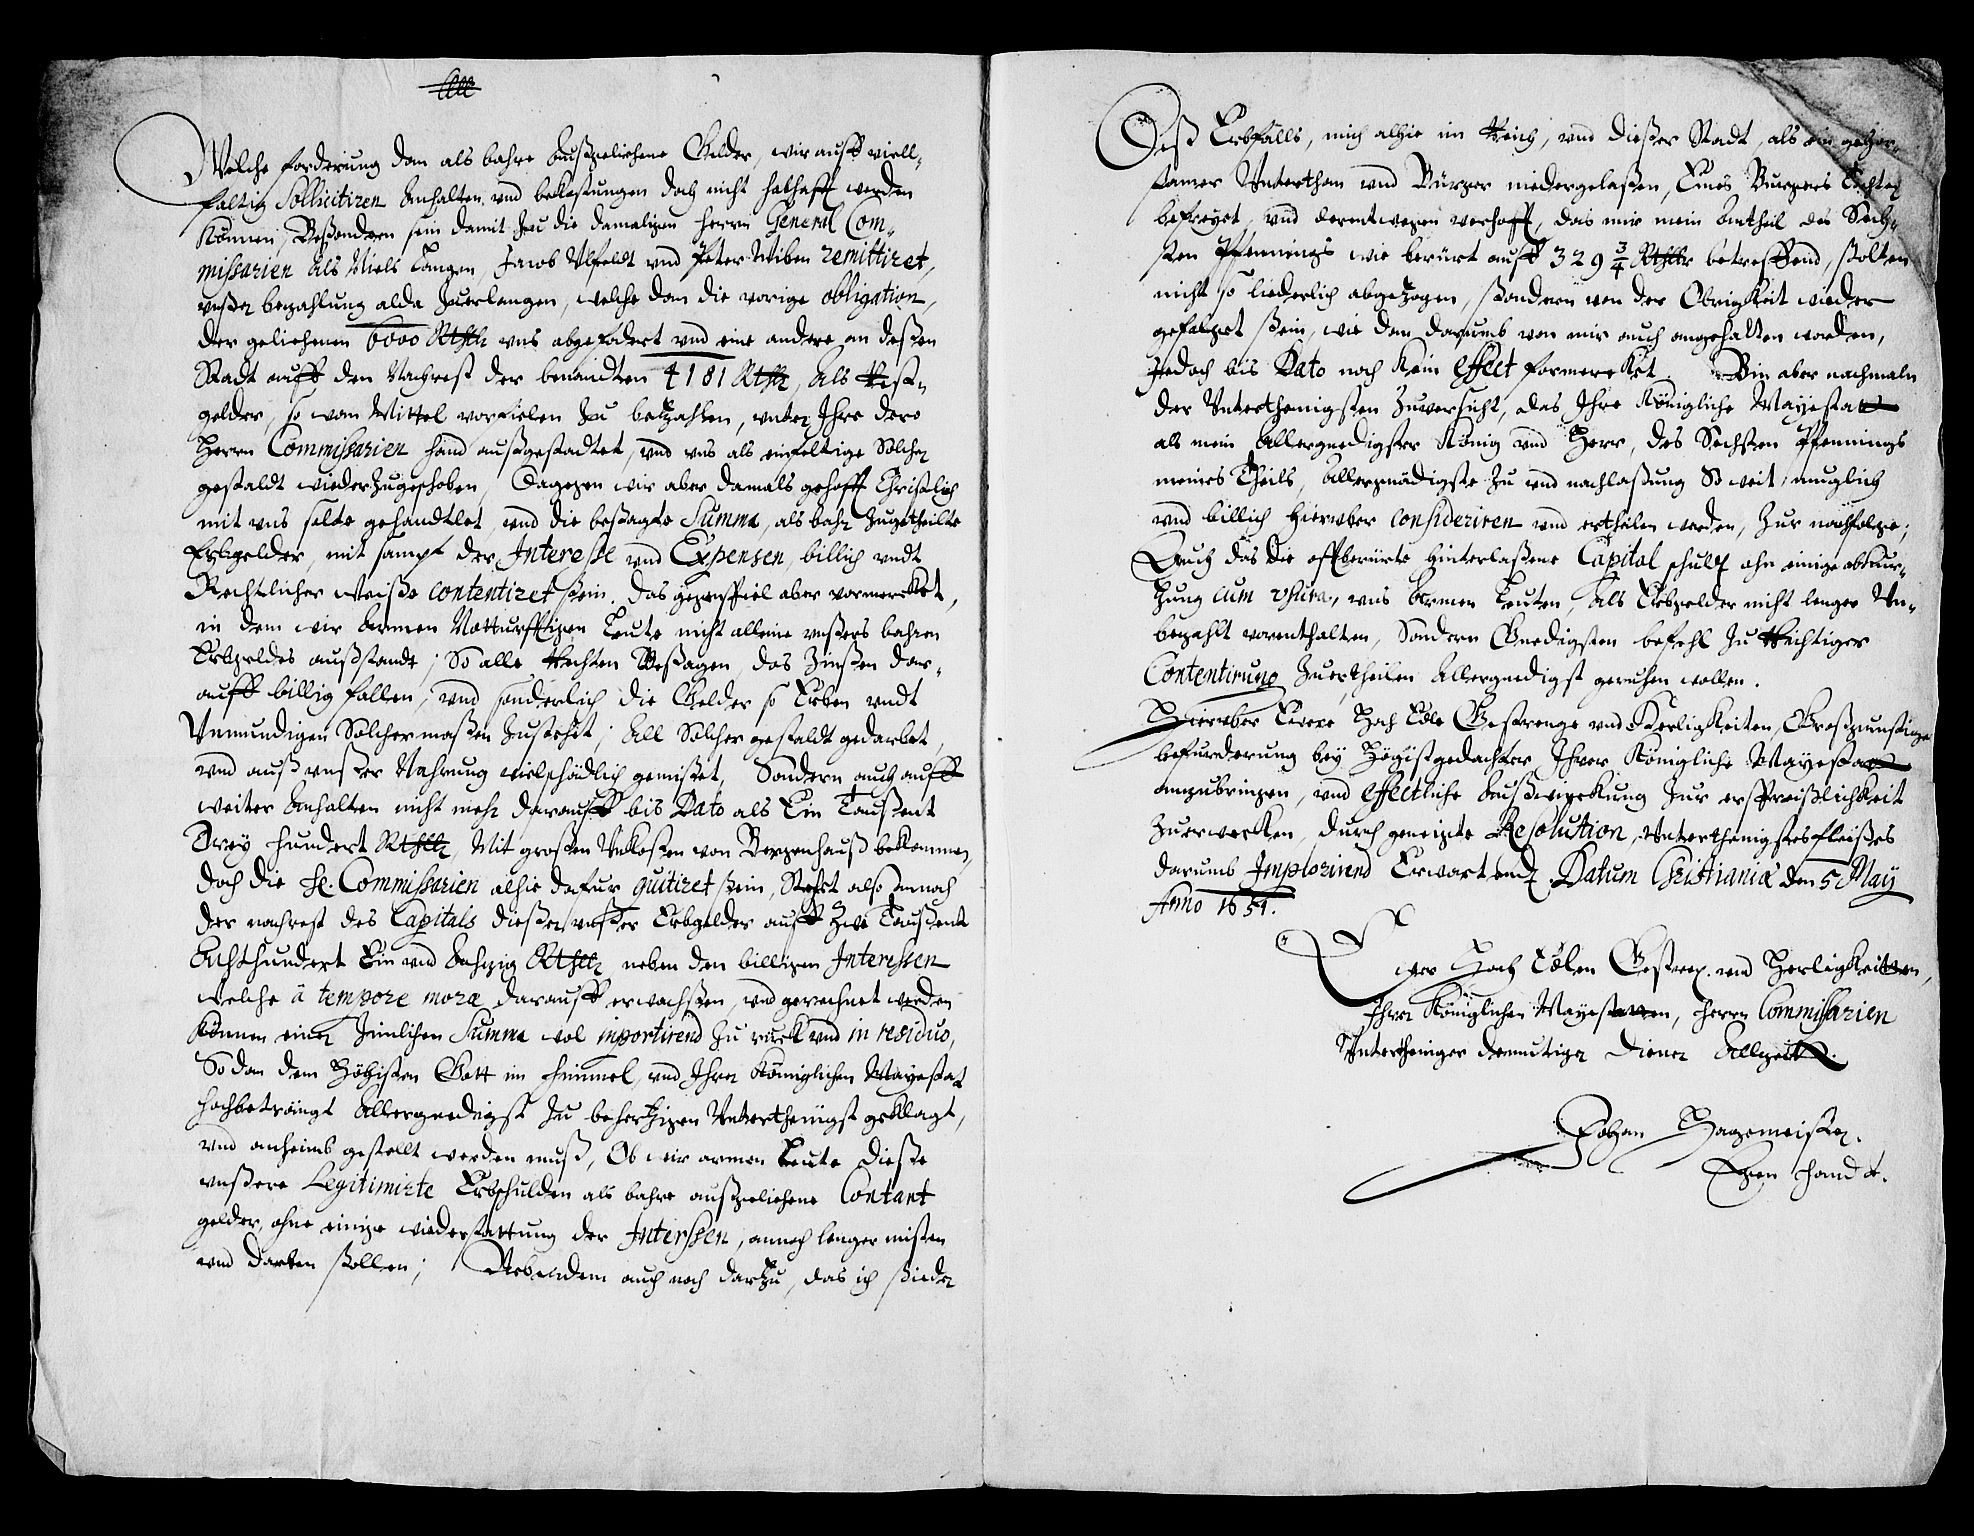 Welche forderung dan als bahre außgeliehene Gelder, wir auff viell-
faltig Sollicitiren Anhalten, vnd bekostungen doch nicht habhafft werden
können, Besondern sein damit zu die damaligen Herrn General Com-
missarien als Niels Langen, Jacob Ulfeldt vnd Peter Wiben remittiret,
vnßer bezahlung alda zuerlangen, welche dan die vorige obligation,
der geliehenen 6000 Rthlr vns abgefodert vnd eine andere an deßen
Stadt auff den Nachrest der benandten 4181 Rthlr, als
gelder, so von Mittel vorfielen zu betzahlen, vnter Ihre dero
Herrn Commissarien hand außgestadtet, vnd vns als einfeltige Solcher
gestaldt wiederzugeschoben, Dagegen wir aber damals gehofft Christlich
mit vns solte gehandtlet, vnd die besagte Summa, als bahr zugetheilte
Erbgelder, mit sampt der Interesse vnd Expensen, billich vndt
Rechtlicher weiße contentiret sein. Das gegenspiel aber vormercket,
in dem wir Armen Notturfftigen Leute nicht alleine vnßers bahren
Erbgeldes außstande; So alle Rechten Besagen, das Zinßen dar-
auff billig fallen, vnd sonderlich die Gelder so Erben vndt
Vnmundigen Solchermaßen zustehet; All Solcher gestaldt gedarbet,
vnd auß vnßer Nahrung vielschädlich gemißet, Sondern auch auff
weiter Anhalten nicht mehr darauff bis Dato als Ein Taußent
Drey hundert Rthlr, Mit großen Vnkosten von Bergenhauß bekommen,
doch die H. Commissarien alhie dafur quitiret sein, Stehet also annoch
der nachrest des Capitals dießer vnßer Erbgelder auff Zwe Taußent
Achthundert Ein vnd Achzig Rthlr neben den billigen Interessen
welche à tempore moræ darauff erwachßen, vnd gerechnet werden
können einer zimlichen Summa wol importirend zu rück vnd in residuo,
So dan dem Höhisten Gott im Himmel, vnd Ihrer Königlichen Mayestat
hochbetrangt Allergnedigst zu behertzigen Vnterthenigst geklagt,
vnd anheims gestellt werden muß, Ob wir armen Leute dieße
vnßere Legitimirte Erbschulden als bahre außgeliehene Contant
gelder, ohne einige wiederstattung der Interssen, annoch lenger mißen
vnd darben sollen; Nebendem auch noch darzu, das ich sieder
Deß Erbfalls, mich alhie im Reich, vnd dießer Stadt, als ein gehor-
samer Vnterthan vnd Bürger niedergelaßen, Eines Burgers Tochter
befreyet, vnd derentwegen verhofft, das mir mein Antheil des Sechs-
ten Pfennings wie berürt auff 329 3/4 Rthlr betreffend, solten
nicht so liederlich abgezogen, sondern von der Obrigkeit wieder
gefolget sein, wie dan darumb von mir auch angehalten worden,
Jedoch bis Dato noch kein Effect formercket. Bin aber nachmaln
der Vnterthenigsten Zuversicht, das Ihre Königliche Mayestat
als mein Allergnedigster König vnd Herr, des Sechsten Pfennings
meines Theils, Allergnädigste zu vnd nachlaßung So weit muglich
vnd billich hieruber consideriren vnd ertheilen werden, zur nachfolge;
Auch das die offberürte hinterlaßene Capital schult ohn einige abkur-
zung cum vsura, vns Armen Leuten, Als Erbgelder nicht lenger Vn-
bezahlt vorenthalten, Sondern Gnedigsten befehl zu Richtiger
Contentirung zuertheilen Allergnedigst geruhen wollen.
Hieruber Ewere Hoch Edle Gestrenge vnd Herligkeiten, Großgunstige
befurderung bey Högistgedachter Ihrer Königliche Mayestat
anzubringen, vnd effectliche Außwirckung zur ersprießlichkeit
zuerwecken, durch geneigte Resolution, Vnterthenigstes fleißes
darumb Implorirend Erwartend, Datum Christianiæ den 5 May
Anno 1651.
Ewer Hoch Edlen Gestreng. vnd Herligkeitten,
Ihrer Königlichen Mayestatten, Herrn Commissarien
Vntertheniger demutiger diener Allzeitt.
Johan Hagemeister.
Eigen handt.